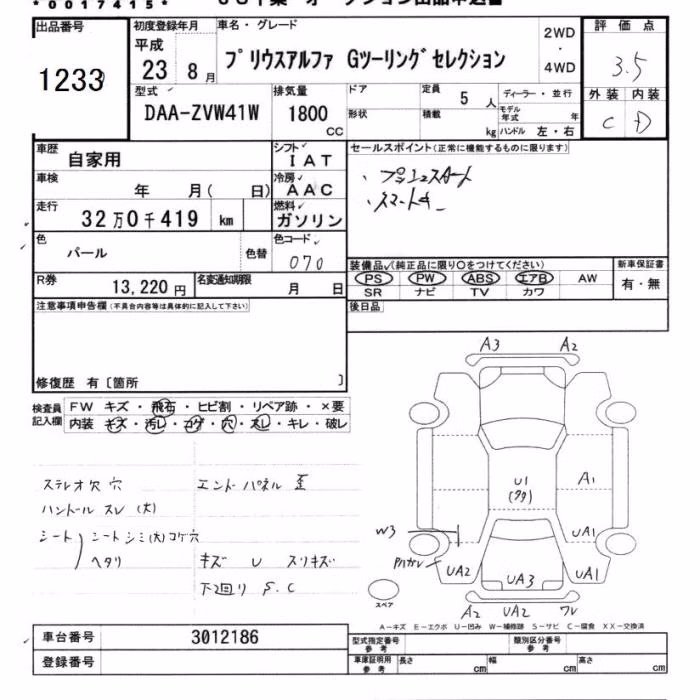 *0017415*
出品番号 初度登録年月 車名・グレード 2WD・4WD 評価点
1233 平成 23 8月 プリウスアルファ Gツーリングセレクション 3.5
型式 排気量 ドア 定員 5人 ディーラー・並行 外装 内装
DAA-ZVW41W 1800 CC 形状 積載 kg モデル年式 年 ハンドル 左・右 C D
車歴 自家用 シフト IAT セールスポイント(正常に機能するものに限ります)
車検 年 月( 日) 冷房 AAC ・プッシュスタート
走行 32万0千419 km 燃料 ガソリン ・スマートキー
色 パール 色替 色コード 070
装備品(純正品に限り○をつけてください) 新車保証書
R券 13,220円 名変通知期限 月 日 PS PW ABS エアB AW 有・無
SR ナビ TV カワ
注意事項申告欄(不具合内容等は具体的に記入して下さい) 後日品
修復歴 有〔箇所 〕
検査員記入欄 FW キズ・飛石・ヒビ割・リペア跡・×要
内装 キズ・汚レ・コゲ・穴・スレ・キレ・破レ
A3 A2
ステレオ穴 穴 エンドパネル 歪
U1 A1
ハンドル スレ(大)
シート シートシミ(大)コゲ穴 W3 UA1
ヘタリ キズ U スリキズ
UA2 UA3 UA1
下回り S.C
スペア A2 UA2 ワレ
A-キズ E-エクボ U-凹み W-補修跡 S-サビ C-腐食 XX-交換済
車台番号 3012186 型式指定番号 参考 類別区分番号 参考
登録番号 車庫証明用 参考 長さ cm 幅 cm 高さ cm